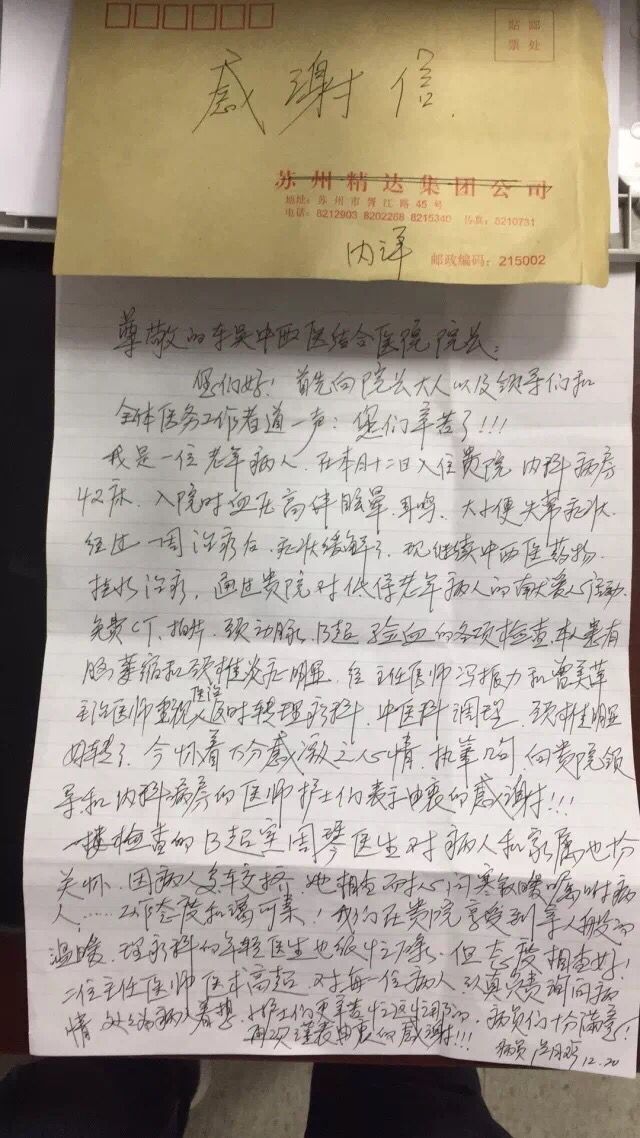 贴 邮
票 处
感谢信.
苏州精达集团公司
地址：苏州市胥江路 45 号
电话：8212903 8202268 8215340 传真：5210731
内详
邮政编码：215002
尊敬的东吴中西医结合医院院长：
您们好！首先向院长大人以及领导们和
全体医务工作者道一声：您们辛苦了!!!
我是一位老年病人.在本月十二日入住贵院 内科病房
42床.入院时血压高伴眩晕.耳鸣.大小便失常症状.
经过一周治疗后.症状缓解了.现继续中西医药物.
挂水治疗，通过贵院对低保老年病人的献爱心活动.
免费CT、拍片、颈动脉、B超 验血的各项检查.本人患有
脑萎缩和颈椎炎症明显，经主任医师冯振力和曾美萍
主治医师重视医治及时转理疗科.中医科调理，颈椎明显
好转了.今怀着万分感激之心情.执笔几句 向贵院领
导和内科病房的医师护士们表示由衷的感谢!!!
一楼检查的B超室周琴医生对病人和家属也十分
关怀.因病人多.车交挤.她相当耐心问寒问暖嘱咐病
人……工作态度和蔼可亲！我们在贵院享受到亲人般的
温暖.理疗科的年轻医生也很忙碌.但态度相当好！
二位主任医师医术高超.对每一位病人认真负责询问病
情 处处为病人着想.护士们更辛苦忙这忙那的.病员们十分满意！
再次谨表由衷的感谢!!!
病员 12.20